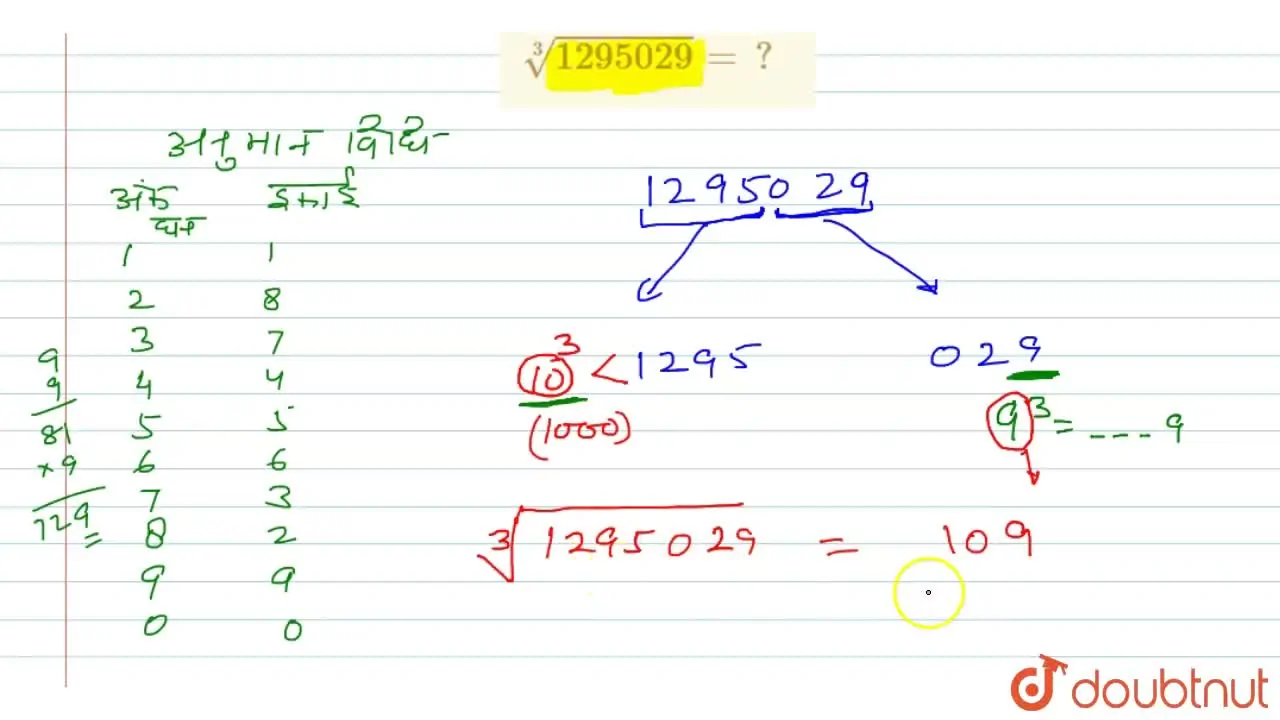 ∛1295029 = ?
अनुमान विधि
अंक इकाई
घन
1 1
2 8
3 7
4 4
5 5
6 6
7 3
8 2
9 9
0 0
9
9
81
×9
729
1295029
10³ < 1295
(1000)
029
9³ = ---9
∛1295029 = 109
doubtnut